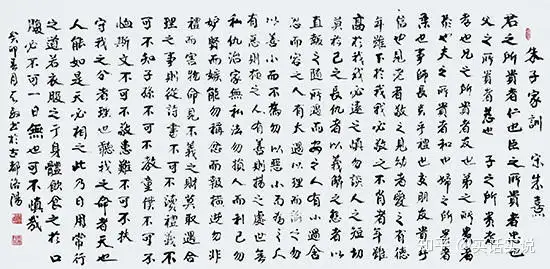 朱子家訓 宋朱熹
君之所貴者仁也臣之所貴者忠也
父之所貴者慈也 子之所貴者
孝也兄之所貴者友也弟之所貴者
恭也夫之所貴者和也婦之所貴者
柔也事師長貴乎禮也交朋友貴乎
信也見老者敬之見幼者愛之有德者
年雖下於我我必敬之不肖者年雖
高於我我必遠之慎勿談人之短切
莫矜己之長仇者以義解之怨者以
直報之隨所遇而安之人有小過含
容而忍之人有大過以理而諭之勿以
善小而不為勿以惡小而為之人
有惡則掩之人有善則揚之處世無
私仇治家無私法勿損人而利己勿
妒賢而嫉能勿稱忿而報橫逆勿非
禮而害物命見不義之財莫取遇合
理之事則從詩書不可不讀禮義不
可不知子孫不可不教童僕不可不
恤斯文不可不敬患難不可不扶
守我之分者理也聽我之命者天也
人能如是天必相之此乃日用常行
之道若衣服之于身體飲食之於口
腹必不可一日無也可不慎哉
癸卯春月書於古都洛陽
知乎